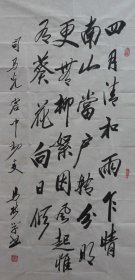 四月清和雨乍晴
南山當户轉分明
更無柳絮因風起惟
有葵花向日傾
司馬光客中初夏